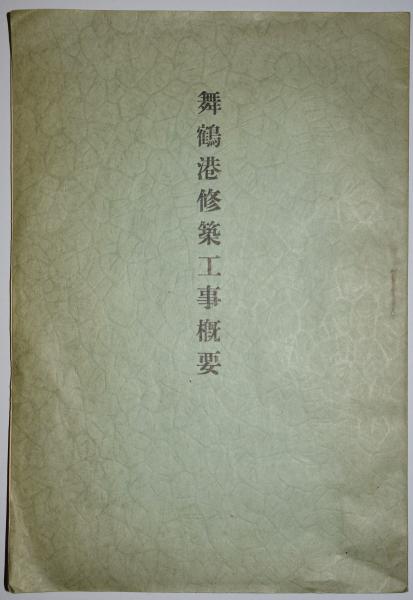 舞鶴港修築工事概要